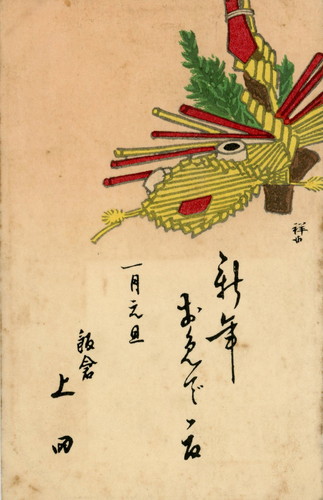 新年
お免でた
一月元旦
飯倉
上田